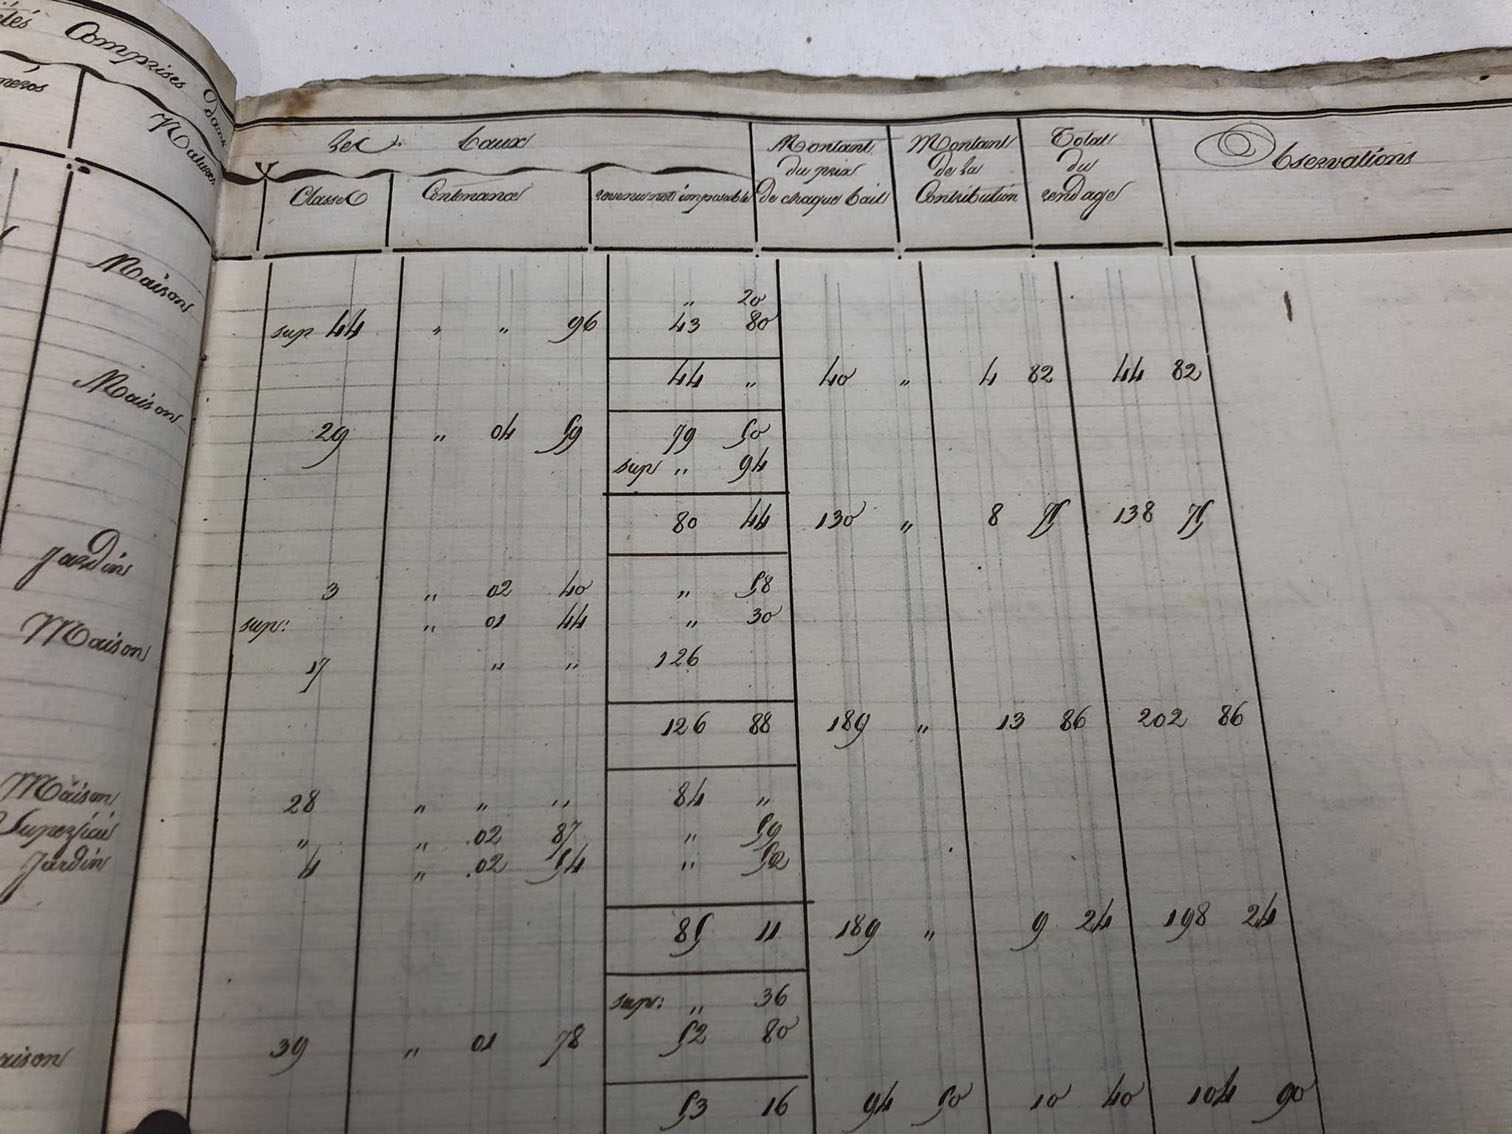 Comprises dans
Natures
Les Baux
Classes
Contenance
revenu net imposable
Montant
du prix
de chaque bail
Montant
de la
Contribution
Total
du
rendage
Observations
Maison
" 20
sup 44 " " 96 43 80
44 " 40 " 4 82 44 82
Maison
29 " 04 59 79 50
sup " 94
80 44 130 " 8 75 138 75
Jardin
3 " 02 40 " 58
sup: " 01 44 " 30
Maison
17 " " 126
126 88 189 " 13 86 202 86
Maison 28 " " " 84 "
Superficie " " 02 87 " 59
Jardin 4 " 02 54 " 52
85 11 189 " 9 24 198 24
sup: " 36
39 " 01 78 52 80
53 16 94 50 10 40 104 90